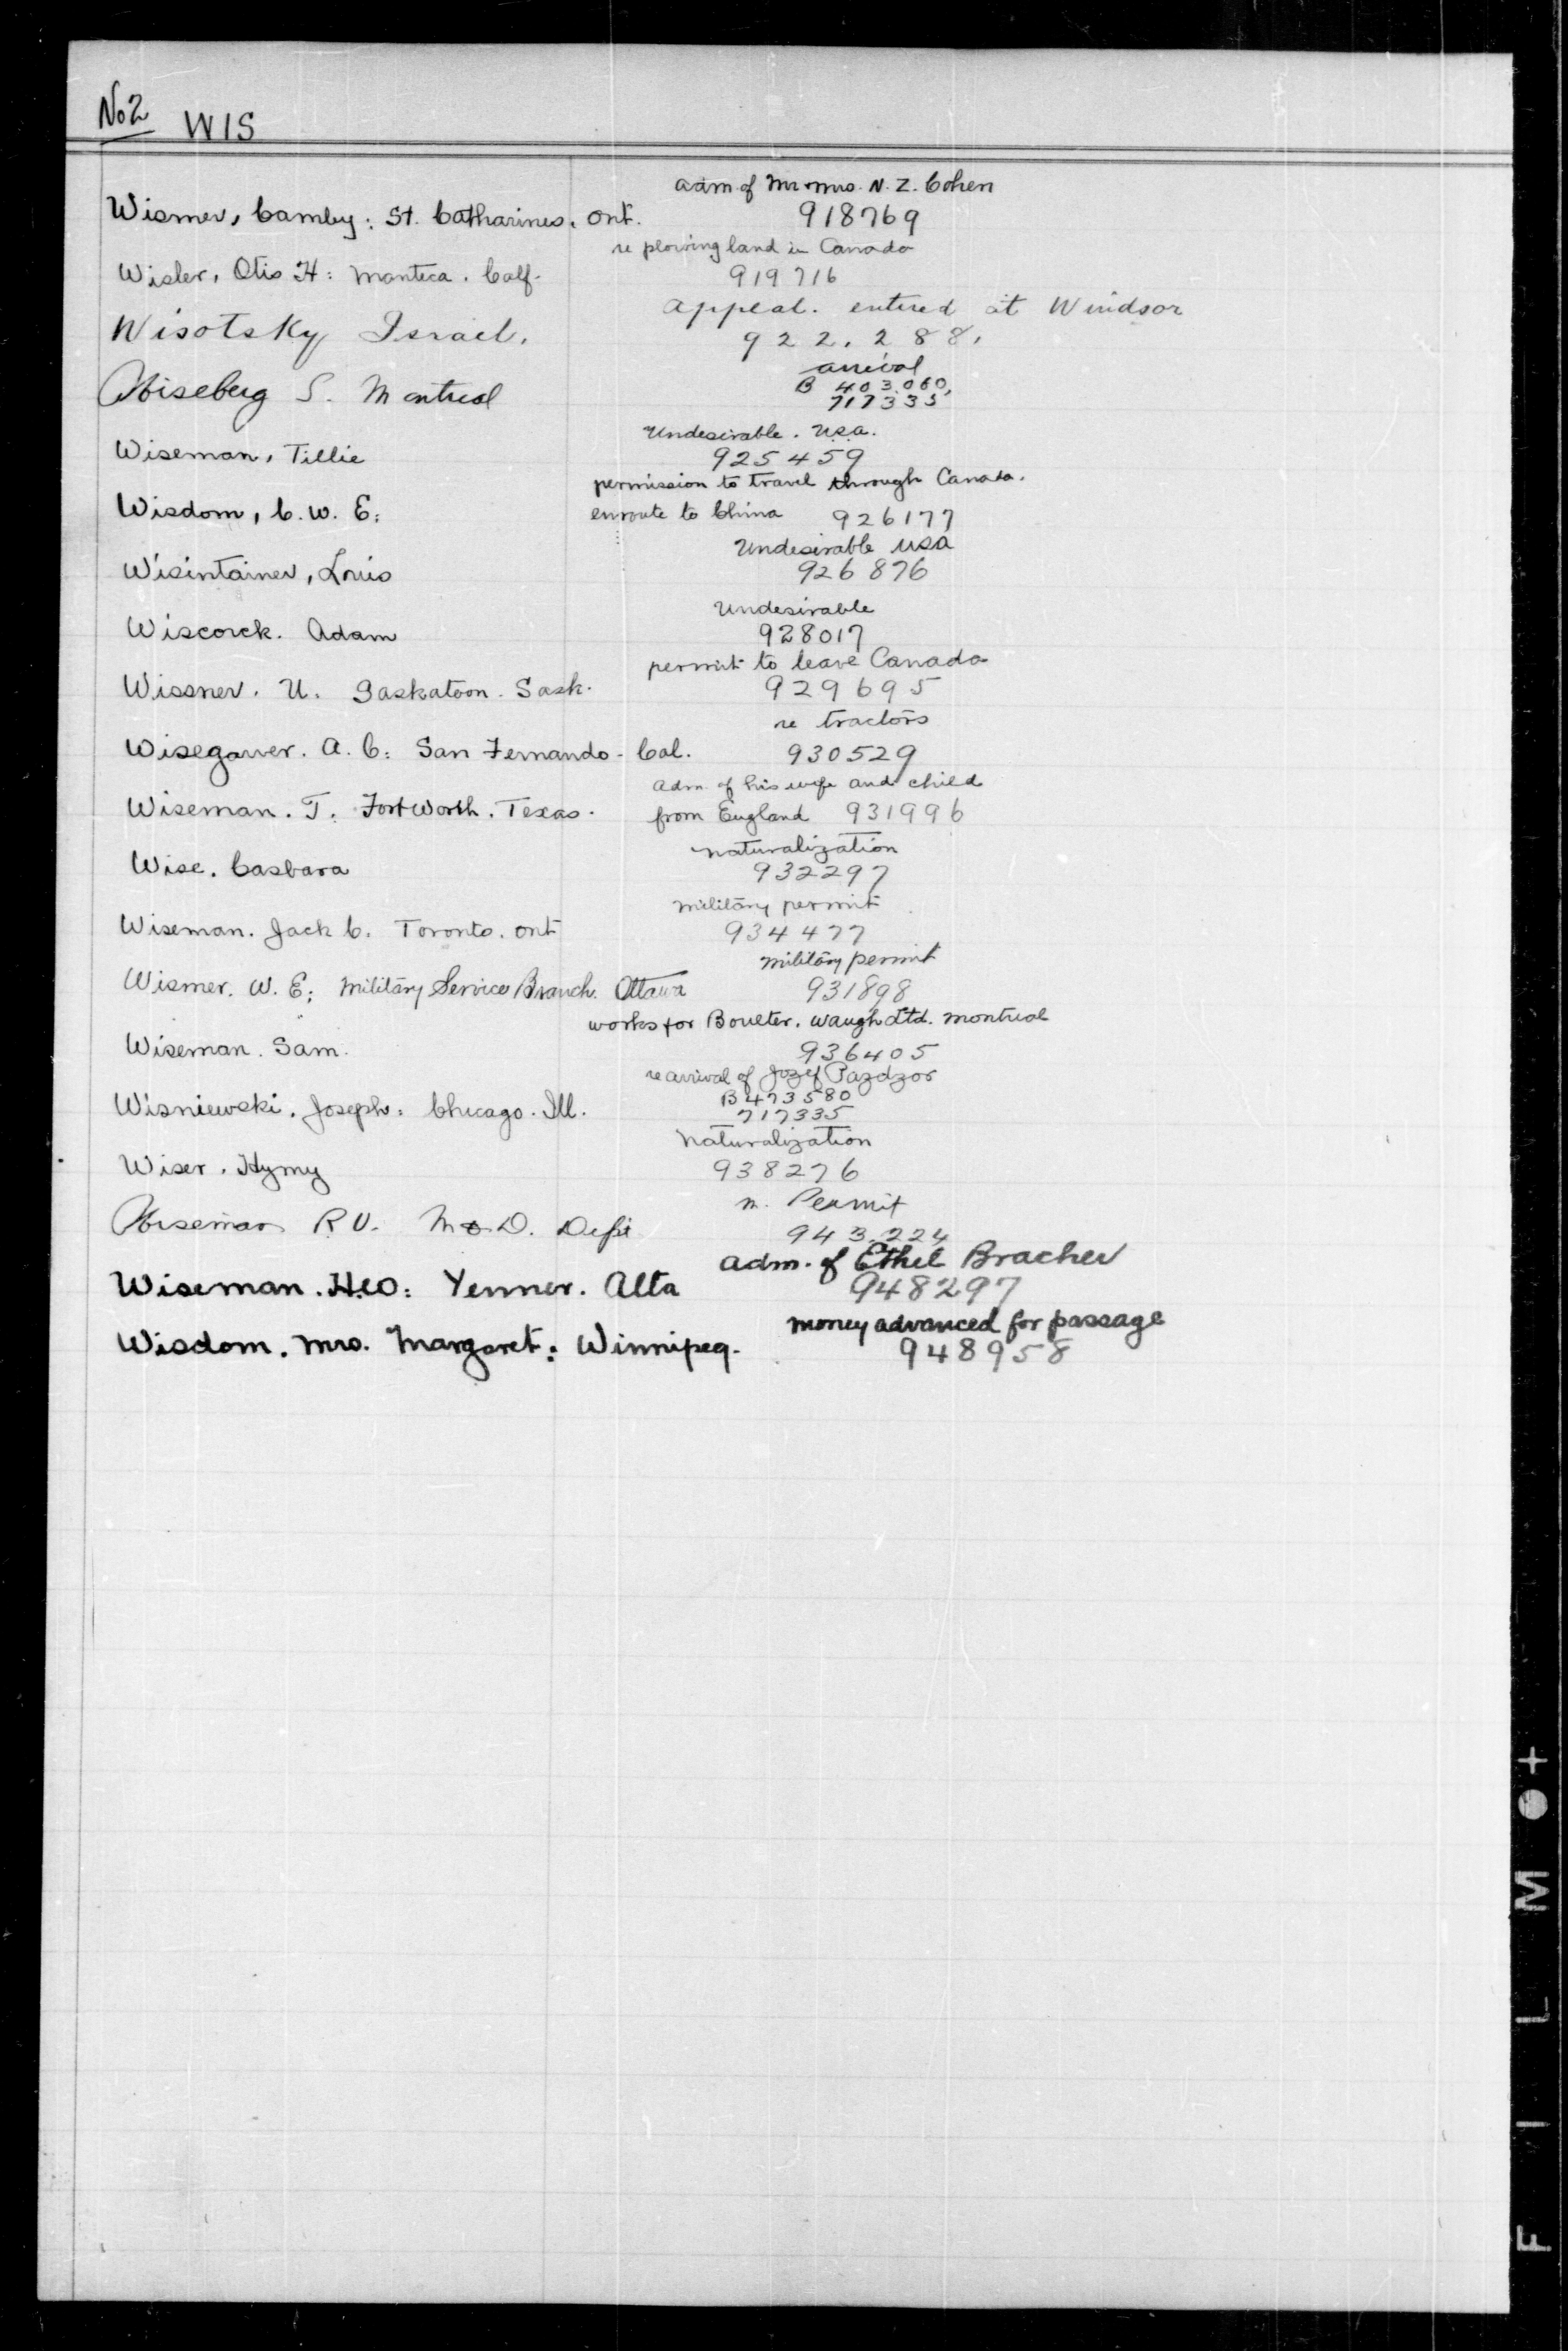 No 2 WIS
adm of Mr & Mrs. N. Z. Cohen
Wismer, Camby: St. Catharines, Ont. 918769
re plowing land in Canada
Wisler, Otis H: Manteca. Calf. 919716
Appeal. entered at Windsor
Wisotsky Israel. 922.288.
arrival
Wiseberg S. Montreal B 403.060,
717335
Undesirable. U.S.A.
Wiseman, Tillie 925459
permission to travel through Canada.
Wisdom, C. W. E: enroute to China 926177
Undesirable USA
Wisintainer, Louis 926876
Undesirable
Wiscorck. Adam 928017
permit to leave Canada
Wissner. U. Saskatoon. Sask. 929695
re tractors
Wisegarver. A. C: San Fernando - Cal. 930529
adm. of his wife and child
Wiseman. T. Fort Worth. Texas. from England 931996
naturalization
Wise. Casbara 932297
military permit
Wiseman. Jack C. Toronto. Ont 934477
military permit
Wismer. W. E; Military Service Branch. Ottawa 931898
works for Boulter. Waugh Ltd. Montreal
Wiseman. Sam. 936405
re arrival of Jozef Pazdzor
B 473580
Wisniewski. Joseph: Chicago. Ill. 717335
Naturalization
Wiser. Hymy 938276
M. Permit
Wiseman R V. M & D. Dept 943.224
adm. of Ethel Bracher
Wiseman. H.W: Yenner. Alta 948297
money advanced for passage
Wisdom. Mrs. Margaret: Winnipeg. 948958
FILM